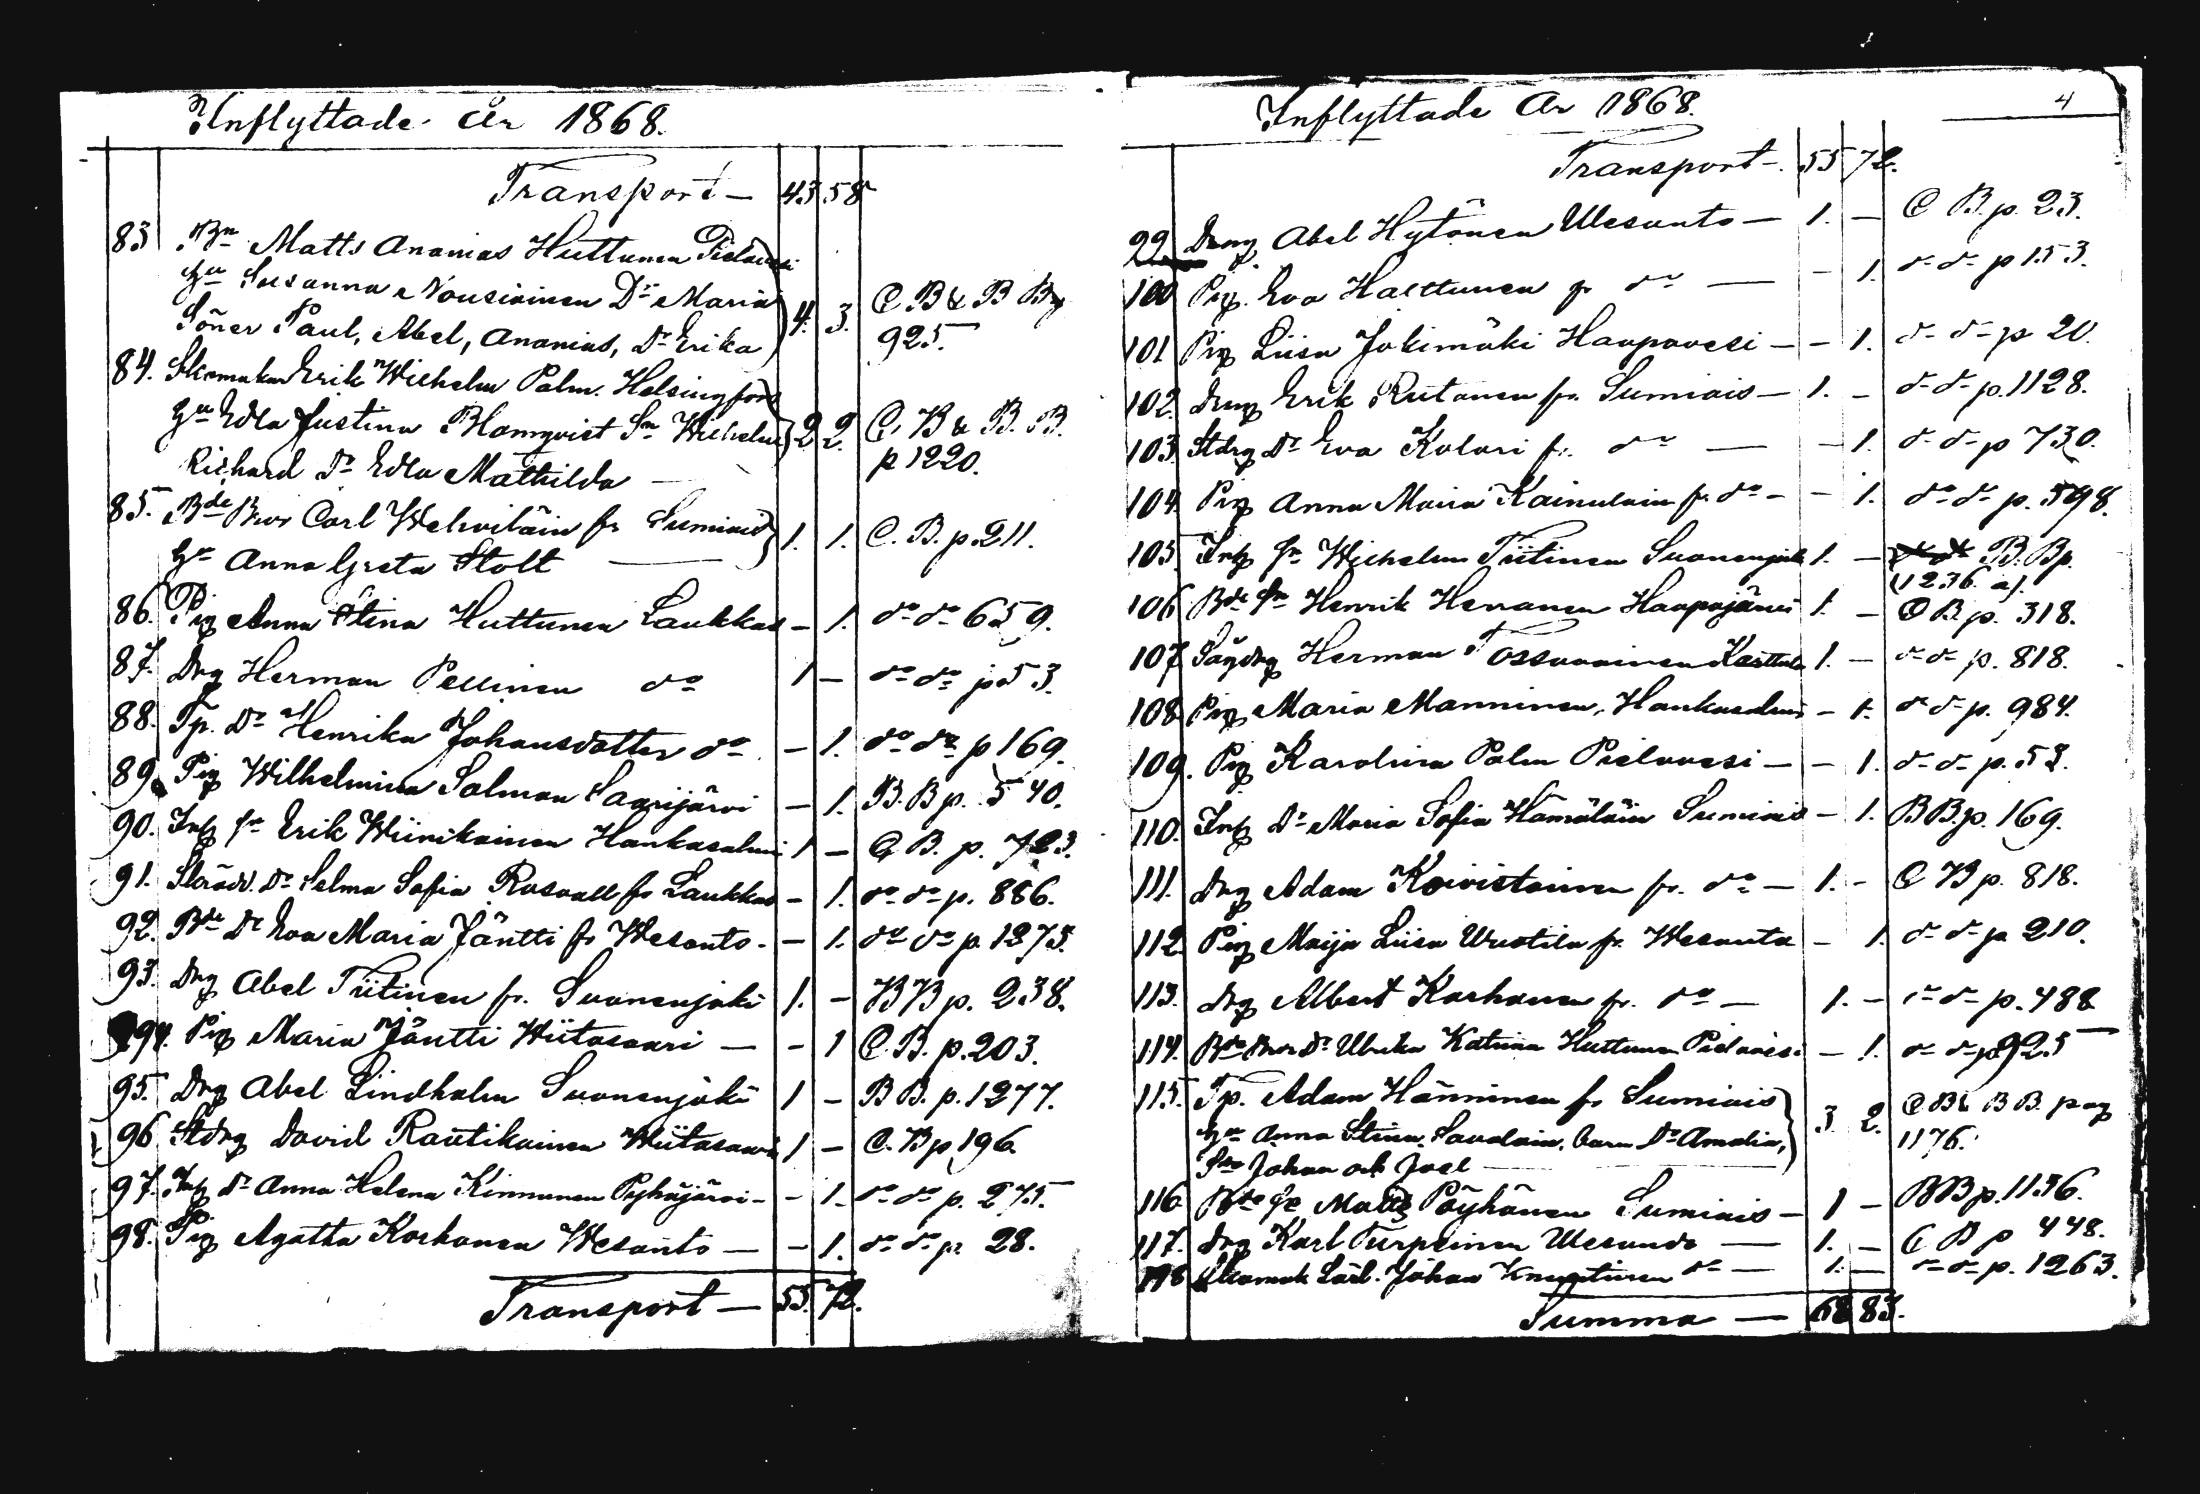 Inflyttade År 1868.
Transport — 43 58
83 Bn Matts Ananias Huttunen Pielavesi
Hu Susanna Nousiainen Dr Maria
Söner Paul, Abel, Ananias, Dr Erika 4. 3. C B & B B p
925.
84. Skomakar Erik Wilhelm Palm. Helsingfors
Hu Edla Justina Blomqvist Sn Wilhelm 2 2 C. B & B. B.
Richard Dr Edla Mathilda — p 1220.
85. Bde Bror Carl Wehviläin fr Sumiais
Hu Anna Greta Stolt — 1. 1. C. B. p. 211.
86. Pig Anna Stina Huttunen Laukkas — 1. do do 659.
87. Drg Herman Pellinen do 1 — do do p 53.
88. Tp. Dr Henrika Johansdotter do — 1. do do p 169.
89. Pig Wilhelmina Salman Saarijärvi — 1. B. B p. 540.
90. Inh sn Erik Wiinikainen Hankasalmi 1 — C B. p. 723.
91. Skrädd. Dr Selma Sofia Rosvall fr Laukkas — 1. do do p. 886.
92. Bde Dr Eva Maria Jäntti fr Wesanto. — 1. do do p. 1275.
93. Drg Abel Tiitinen fr. Suonenjoki 1. — B B p. 238.
94. Pig Maria Jäntti Wiitasaari — — 1 C. B. p. 203.
95. Drg Abel Lindholm Suonenjoki 1 — B B. p. 1277.
96 Stdrg David Rautikainen Wiitasaari 1 — C. B p 196.
97. Inh dr Anna Helena Kinnunen Pyhäjärvi — — 1. do do p. 275.
98. Pig Agatha Korhonen Wesanto — — 1. do do p. 28.
Transport — 55. 72.
Inflyttade År 1868. 4
Transport — 55 72.
99 Dreng Abel Hytönen Wesanto — 1. — C B. p. 23.
100 Pig. Eva Halttunen fr do — — 1. do do p 153.
101 Pig Liisa Jokimäki Haapavesi — — 1. do do p 20.
102. Dreng Erik Rutanen fr. Sumiais — 1. — do do p. 1128.
103. Stdrg Dr Eva Kolari fr. do — — 1. do do p 730.
104. Pig Anna Maria Kainulain fr. do — — 1. do do p. 598.
105 Inh sn Wilhelm Tiitinen Suonenjoki 1. — B. B p.
(1236 a).
106 Bde sn Henrik Herranen Haapajärvi 1. — C B. p. 318.
107 Sågdrg Herman Tossavainen Karttula 1. — do do p. 818.
108 Pig Maria Manninen, Hankasalmi — 1. do do p. 984.
109. Pig Karolina Palm Pielavesi — — 1. do do p. 53.
110. Inh Dr Maria Sofia Hämäläin Sumiais — 1. B B. p. 169.
111. Drg Adam Koivistoinen fr. do — 1. — C B p. 818.
112. Pig Maija Liisa Wuotila fr. Wesanta — 1. do do p 210.
113. Drg Albert Korhonen fr. do — 1. — do do p. 488
114. Bde Bror Dr Ulrika Katrina Huttunen Pielavesi — 1. do do p 925
115. Tp. Adam Hänninen fr Sumiais
Hu Anna Stina Savolain, barn Dr Amalia, 3. 2. C B & B B. pag
Sner Johan och Joel — 1176.
116 Bde sn Matts Pöyhönen Sumiais — 1 — B B p. 1156.
117. Drg Karl Turpeinen Wesando — 1. — C B p 448.
118 Skomak Lärl. Johan Knuutinen do — 1. — do do p. 1263.
Summa — 68 83.